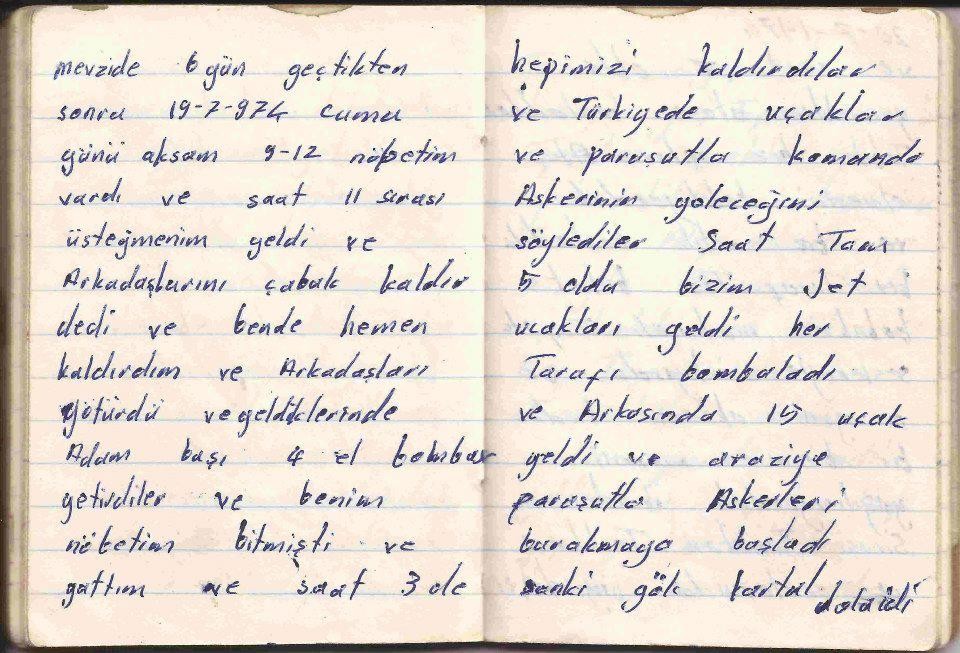 mevzide 6 gün geçtikten
sonra 19-7-974 cuma
günü akşam 9-12 nöbetim
vardı ve saat 11 sırası
üsteğmenim geldi ve
Arkadaşlarını çabuk kaldır
dedi ve bende hemen
kaldırdım ve Arkadaşları
götürdü ve geldiklerinde
Adam başı 4 el bombası
getirdiler ve benim
nöbetim bitmişti ve
yattım ve saat 3 de
hepimizi kaldırdılar
ve Türkiyede uçaklar
ve paraşutla komando
Askerinim geleceğini
söylediler Saat Tam
5 oldu bizim Jet
uçakları geldi her
Tarafı bombaladı
ve Arkasında 15 uçak
geldi ve araziye
paraşutla Askerleri
burakmaya başladı
sanki gök kartal dolaidi